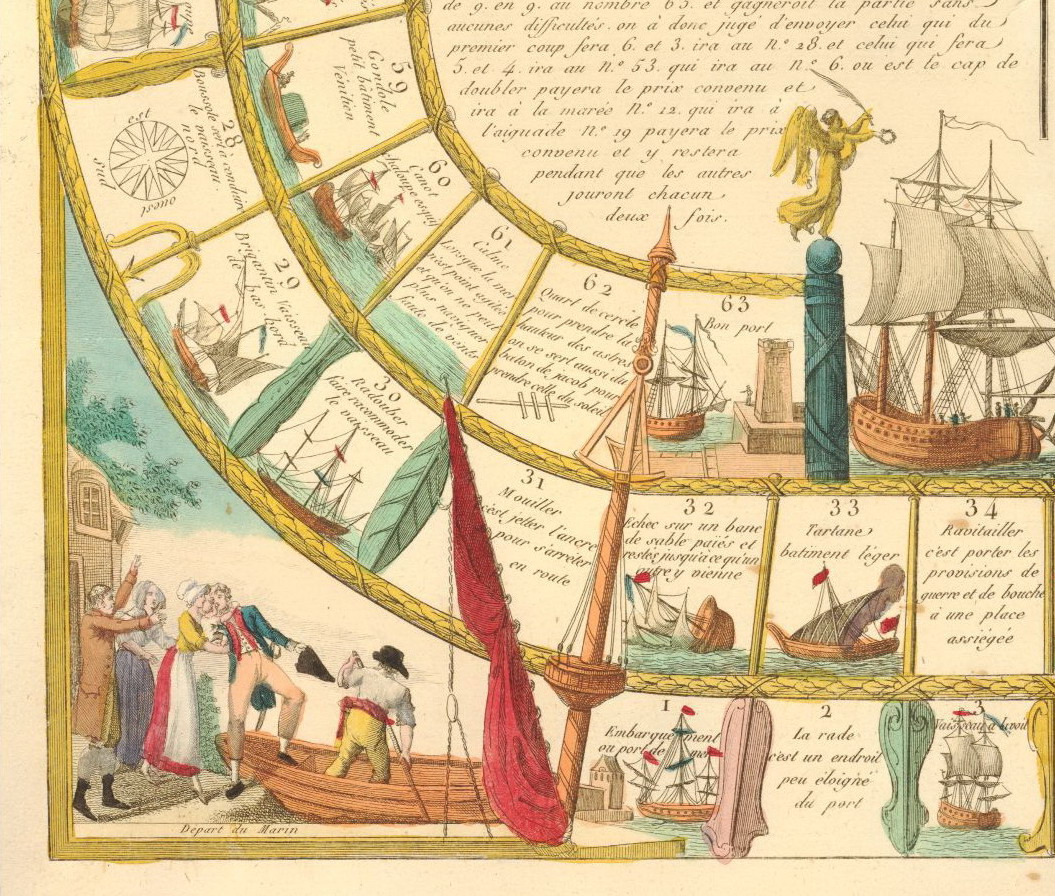 de 9. en 9. au nombre 63. et gagneroit la partie sans
aucunes difficultés. on à donc jugé d'envoyer celui qui du
premier coup fera 6. et 3. ira au N.º 28. et celui qui fera
5. et 4. ira au N.º 53. qui ira au N.º 6. ou est le cap de
doubler payera le prix convenu et
ira à la marée N.º 12. qui ira à
l'aiguade N.º 19 payera le prix
convenu et y restera
pendant que les autres
jouront chacun
deux fois.
59
Gondole
petit bâtiment
Vénitien
28
Boussole sert à conduire
le vaisseau.
est
nord
sud
ouest
60
Canot
chaloupe esquif
61
Calme
Lorsque la mer
n'est point agitée
et qu'on ne peut
plus naviguer
faute de vents
62
Quart de cercle
pour prendre la
hauteur des astres
on se sert aussi du
baton de jacob pour
prendre celle du soleil
63
Bon port
29
Brigantin Vaisseau
de bas bord
30
Radouber
faire racommoder
le vaisseau
31
Mouiller
c'est jetter l'ancre
pour s'arrêter
en route
32
Echec sur un banc
de sable païés et
restés jusqu'à ce qu'un
autre y vienne
33
Tartane
batiment léger
34
Ravitailler
c'est porter les
provisions de
guerre et de bouche
à une place
assiégée
1
Embarquement
ou port de mer
2
La rade
c'est un endroit
peu éloigné
du port
3
Vaisseau à la voile
Départ du Marin